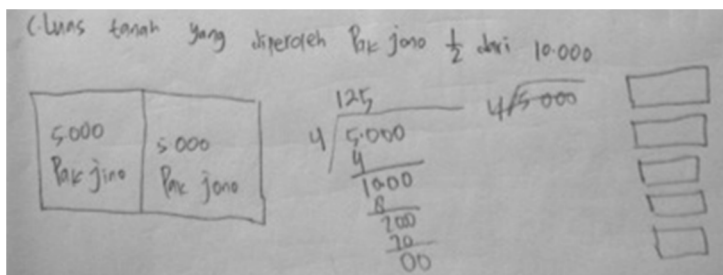 C. Luas tanah yang diperoleh Pak jono 1/2 dari 10.000
5000
Pak jino
5000
Pak jono
125
4 5.000
4
1000
8
200
20
00
4 5.000